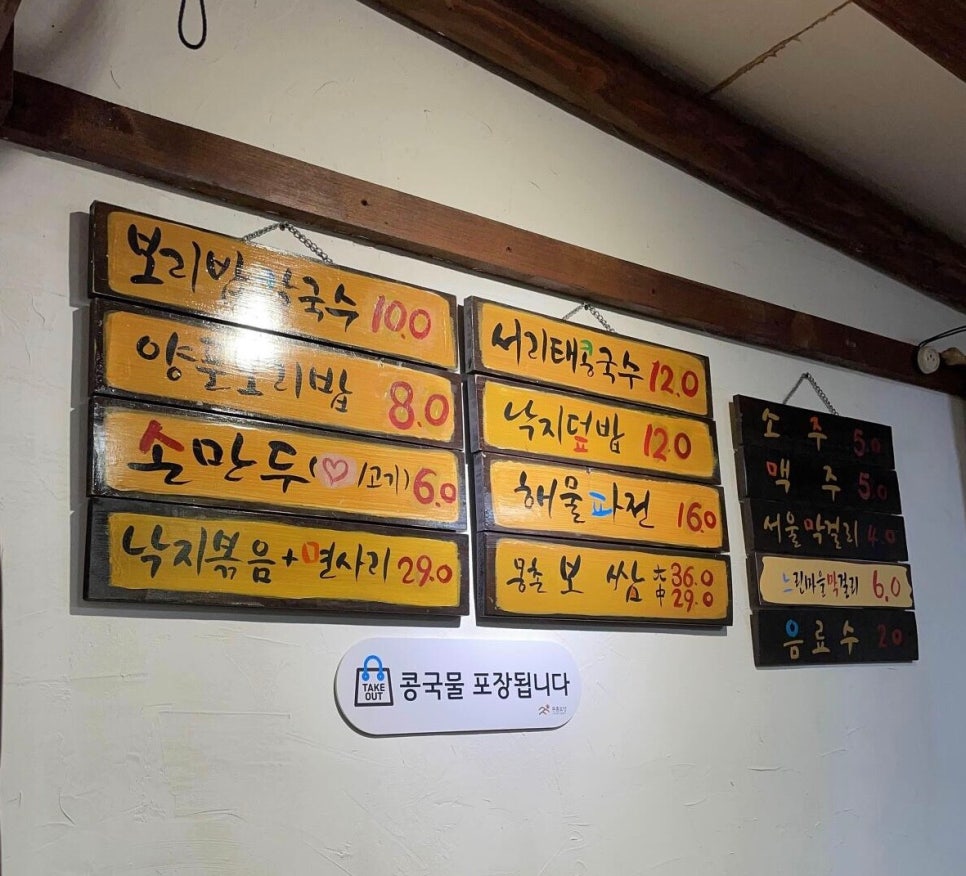 보리밥칼국수 10.0
양푼보리밥 8.0
손만두(♡/고기) 6.0
낙지볶음+면사리 29.0
서리태콩국수 12.0
낙지덮밥 12.0
해물파전 16.0
몽촌 보쌈 大 36.0
中 29.0
소주 5.0
맥주 5.0
서울막걸리 4.0
느린마을막걸리 6.0
음료수 2.0
TAKE OUT
콩국물 포장됩니다